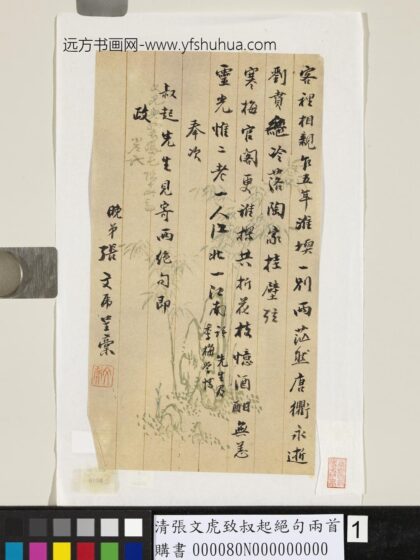 远方书画网-www.yfshuhua.com
客裡相親乍五年淮堧一別兩茫然唐衢永逝
劉蕡冷落陶家挂壁弦
寒梅官閣更誰探共折花枝憶酒酣無恙
靈光惟二老一人江北一江南
先生及
李梅
奉次
叔起先生見寄兩絕句即
政
晚弟張文虎呈稾
清張文虎致叔起絕句兩首
購書 000080N000000000
1